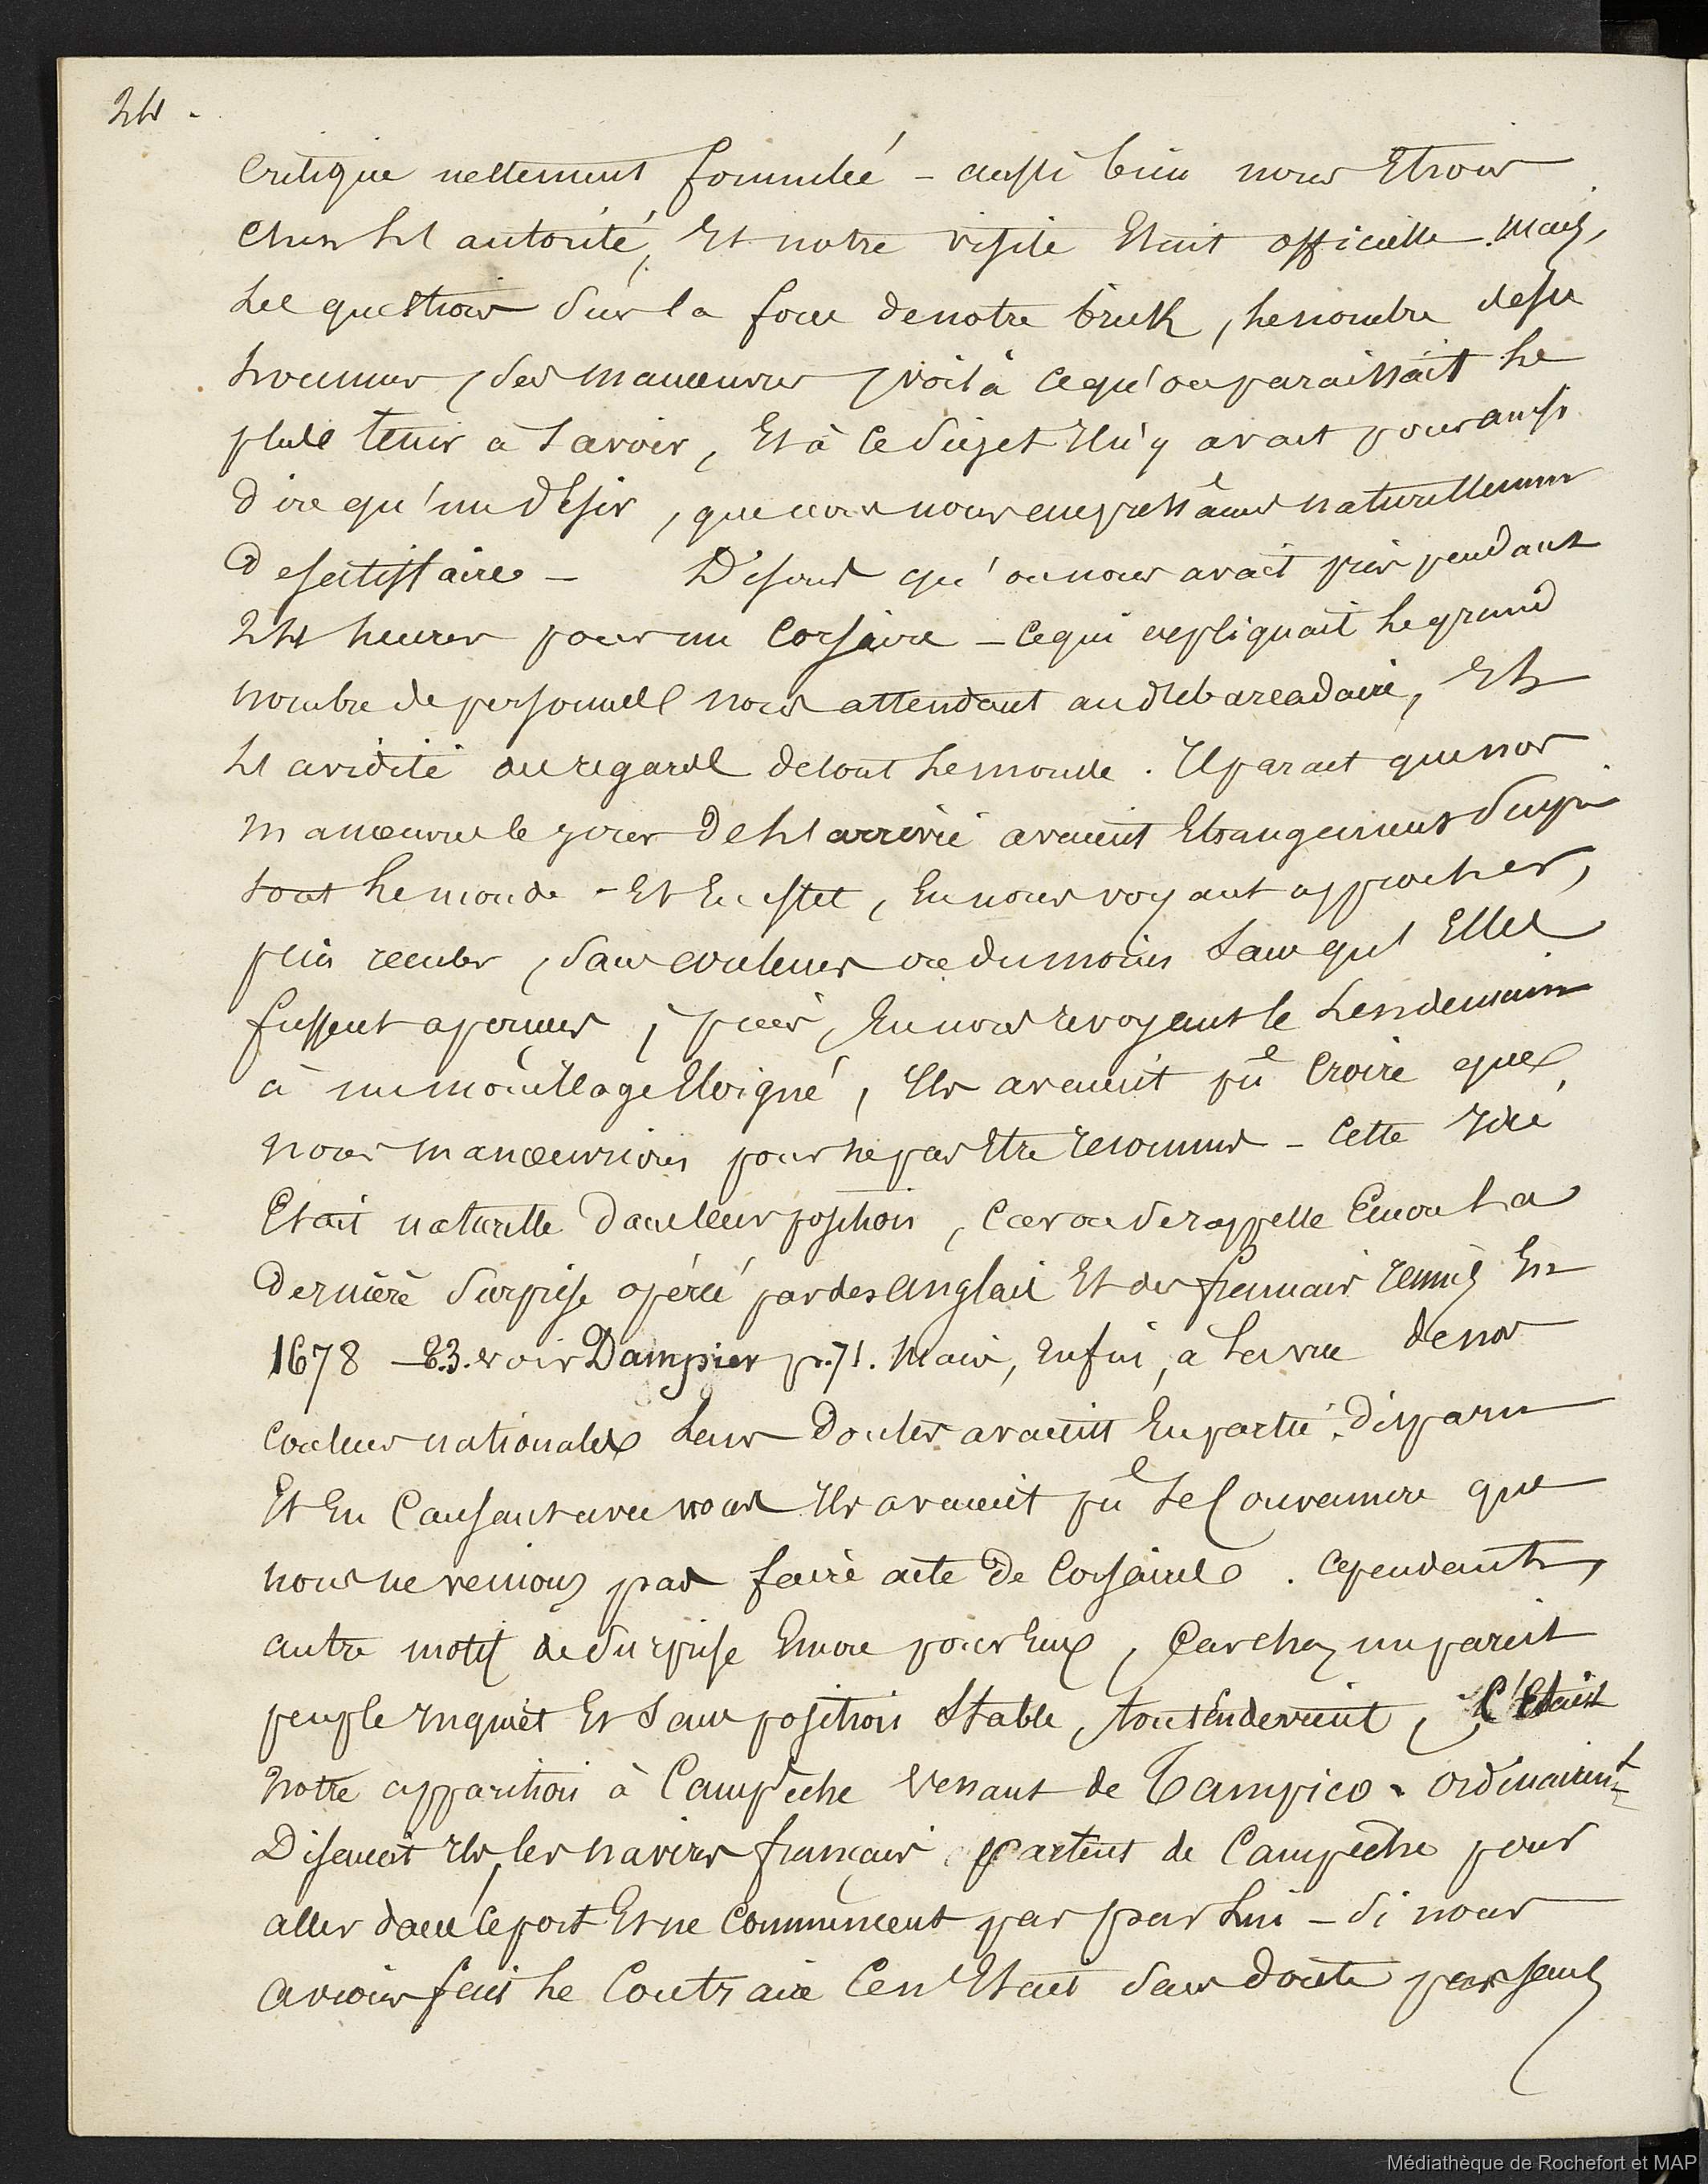 24.
critique nettement formulée – aussi bien nous étions
chez les autorité, et notre visite était officielle. Mais,
les questions sur la force de notre brick, le nombre de ses
hommes, ses manœuvres, voilà ce qu'on paraissait le
plus tenir à savoir, et à ce sujet il n'y avait pour ainsi
dire qu'un désir, que nous nous empressâmes naturellement
de satisfaire – Disons qu'on nous avait pris pendant
24 heures pour un corsaire – ce qui expliquait le grand
nombre de personnes nous attendant au débarcadaire, et
les avidité au regard de tout le monde. Il parait que nos
manœuvres le jour de les arrivée avaient étrangement surpris
tout le monde – et en effet, en nous voyant approcher,
puis reculer, sans couleurs ou du moins sans qu'elles
fussent aperçues, puis, en nous revoyant le lendemain
à un mouillage éloigné, ils avaient pû croire que
nous manœuvrions pour ne pas être reconnus – cette idée
était naturelle dans leur position, car on se rappelle encore la
dernière surprise opérée par des anglais et des français réunis en
1678 – 23. voir Dampier p. 71. Mais, enfin, à la vue de nos
couleurs nationales leurs doutes avaient en partie disparu
et en causant avec nous ils avaient pû se convaincre que
nous ne venions pas faire acte de corsaires. Cependant,
autre motif de surprise encore pour eux, car chez un pareil
peuple inquiet et sans position stable, tout en devient, c'était
notre apparition à Campêche venant de Tampico. Ordinairemt
disaient ils, les navires français partent de Campêche pour
aller dans ce port et ne commencent pas par lui – si nous
avions fait le contraire ce n'était sans doute pas sans
Médiathèque de Rochefort et MAP